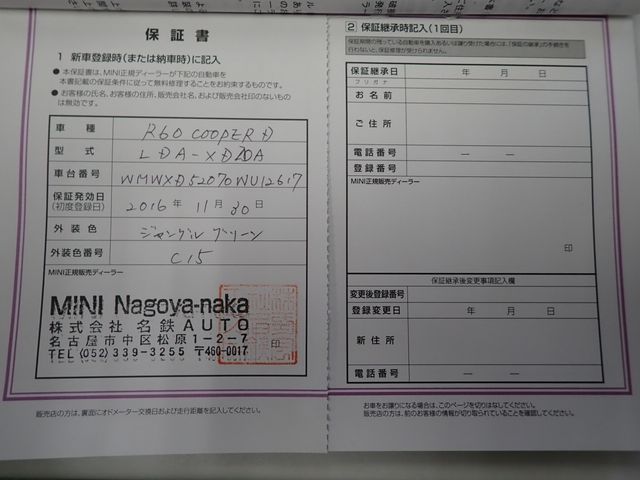 保証書
1 新車登録時(または納車時)に記入
● 本保証書は、MINI正規ディーラーが下記の自動車を
本書記載の保証条件に従って無料修理することをお約束するものです。
● お客様の氏名、お客様の住所、販売会社名、および販売会社印のないもの
は無効です。
車種 R60 COOPER D
型式 LDA-XD20A
車台番号 WMWXD52070WU12617
保証発効日
(初度登録日) 2016 年 11 月 30 日
外装色 ジャングル グリーン
外装色番号 C15
MINI正規販売ディーラー
MINI Nagoya-naka
株式会社 名鉄AUTO
名古屋市中区松原1-2-7
TEL (052)339-3255 〒460-0017
印
販売店の方は、裏面にオドメーター交換日および走行距離を記入してください。
2 保証継承時記入(1回目)
保証期間の残っている自動車を購入あるいは譲り受けた場合には、「保証の継承」の手続きを
行わないと、保証修理が受けられません。
保証継承日 年 月 日
フリガナ
お名前
ご住所
電話番号 ― ―
登録番号
MINI正規販売ディーラー
印
保証継承後変更事項記入欄
変更後登録番号
登録変更日 年 月 日
新住所
電話番号 ― ―
お車をお譲りになる場合は、このページを切りはなしてください。
販売店の方は、前のお客様の情報が切り取られていることを確認してください。